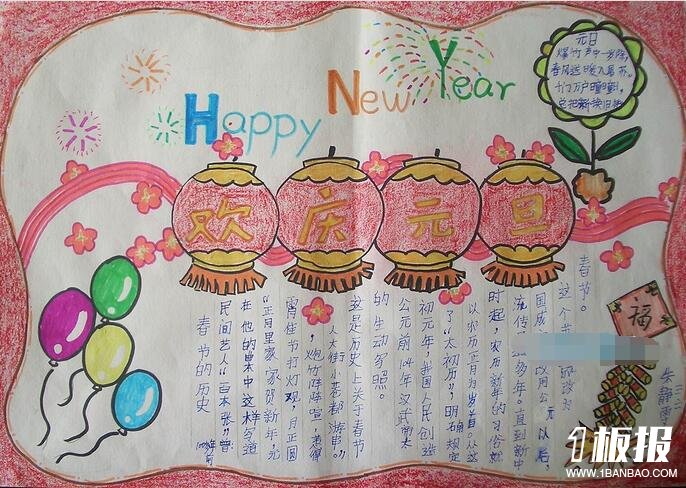 Happy New Year
元日
爆竹声中一岁除,
春风送暖入屠苏。
千门万户曈曈日,
总把新
欢庆元旦
春节的历史
100多年前
民间艺人"百本张"曾
在他的曲本中这样写道
"正月里家家贺新年,元
宵佳节打灯观,月正圆
,炮竹阵阵喧,惹得
人大街小巷都游串。"
这是历史上关于春节
的生动写照。
公元前104年汉武
初元年,我国人民创造
了"太初历",明确规定
以农历正月为岁首。从这
时起,农历新年的习俗就
流传 多年。直到新中
国成 用公元以后,
这个节 改为
春节。
福
朱静
1板报
WWW.1BANBAO.COM